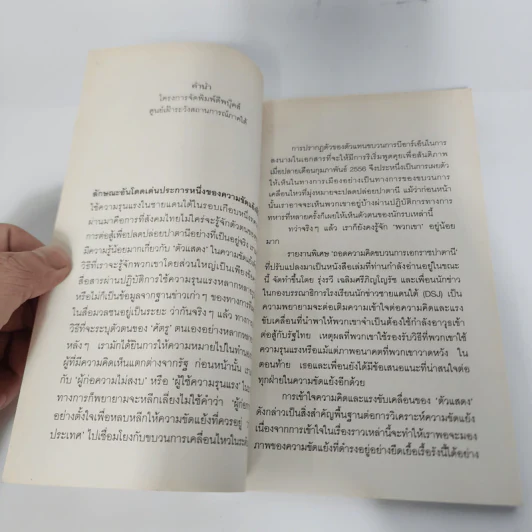 คำนำ
โครงการจัดพิมพ์ดีพบุ๊คส์
ศูนย์เฝ้าระวังสถานการณ์ภาคใต้
ลักษณะอันโดดเด่นประการหนึ่งของความขัดแย้งที่
ใช้ความรุนแรงในชายแดนใต้ในรอบเกือบหนึ่ง
ผ่านมาคือการที่สังคมไทยไม่ใคร่จะรู้จักตัวตนของ
การต่อสู้เพื่อปลดปล่อยปาตานีอย่างที่เป็นอยู่จริง
มีความรู้น้อยมากเกี่ยวกับ 'ตัวแสดง' ในความขัดแย้ง
วิธีที่เราจะรู้จักพวกเขาโดยส่วนใหญ่เป็นเพียง
สื่อสารผ่านปฏิบัติการใช้ความรุนแรงหลากหลาย
หรือไม่ก็เป็นข้อมูลจากฐานข่าวเก่าๆ ของทางการ
ในสื่อมวลชนอยู่เป็นระยะ ว่ากันจริงๆ แล้ว ทางการ
วิธีที่จะระบุตัวตนของ 'ศัตรู' ตนเองอย่างหลากหลาย
หลังๆ เรามักได้ยินการให้ความหมายไปในทำนอง
ผู้ที่มีความคิดเห็นแตกต่างจากรัฐ ก่อนหน้านั้น เรา
กับ 'ผู้ก่อความไม่สงบ' หรือ 'ผู้ใช้ความรุนแรง' ใน
ทางการก็พยายามจะหลีกเลี่ยงไม่ใช้คำว่า 'ผู้ก่อ
อย่างตั้งใจเพื่อหลบหลีกให้ความขัดแย้งที่ควรอยู่
ประเทศ' ไปเชื่อมโยงกับขบวนการเคลื่อนไหวใน
การปรากฏตัวของตัวแทนขบวนการบีอาร์เอ็นในการ
ลงนามในเอกสารที่จะให้มีการริเริ่มพูดคุยเพื่อสันติภาพ
เมื่อปลายเดือนกุมภาพันธ์ 2556 จึงประหนึ่งเป็นการเผยตัว
ให้เห็นในทางการเมืองอย่างเป็นทางการของขบวนการ
เคลื่อนไหวที่มุ่งหมายจะปลดปล่อยปาตานี แม้ว่าก่อนหน้า
นั้นเราอาจจะเห็นพวกเขาอยู่บ้างผ่านปฏิบัติการทางการ
ทหารที่หลายครั้งก็เผยให้เห็นตัวตนของนักรบเหล่านี้
ทว่าจริงๆ แล้ว เราก็ยังคงรู้จัก 'พวกเขา' อยู่น้อย
มาก
รายงานพิเศษ 'ถอดความคิดขบวนการเอกราชปาตานี'
ที่ปรับแปลงมาเป็นหนังสือเล่มที่ท่านกำลังอ่านอยู่ในขณะ
นี้ จัดทำขึ้นโดย รุ่งรวี เฉลิมศรีภิญโญรัช และเพื่อนนักข่าว
ในกองบรรณาธิการโรงเรียนนักข่าวชายแดนใต้ (DSJ) เป็น
ความพยายามจะต่อเติมความเข้าใจต่อความคิดและแรง
ขับเคลื่อนที่นำพาให้พวกเขาจำเป็นต้องใช้กำลังอาวุธเข้า
ต่อสู้กับรัฐไทย เหตุผลที่พวกเขาใช้รองรับวิธีที่พวกเขาใช้
ความรุนแรงหรือแม้แต่ภาพอนาคตที่พวกเขาวาดหวัง ใน
ตอนท้าย เธอและเพื่อนยังได้มีข้อเสนอแนะที่น่าสนใจต่อ
ทุกฝ่ายในความขัดแย้งอีกด้วย
การเข้าใจความคิดและแรงขับเคลื่อนของ 'ตัวแสดง'
ดังกล่าวเป็นสิ่งสำคัญพื้นฐานต่อการวิเคราะห์ความขัดแย้ง
เนื่องจากการเข้าใจในเรื่องราวเหล่านี้จะทำให้เราพอจะมอง
ภาพของความขัดแย้งที่ดำรงอยู่อย่างยืดเยื้อเรื้อรังนี้ได้อย่าง